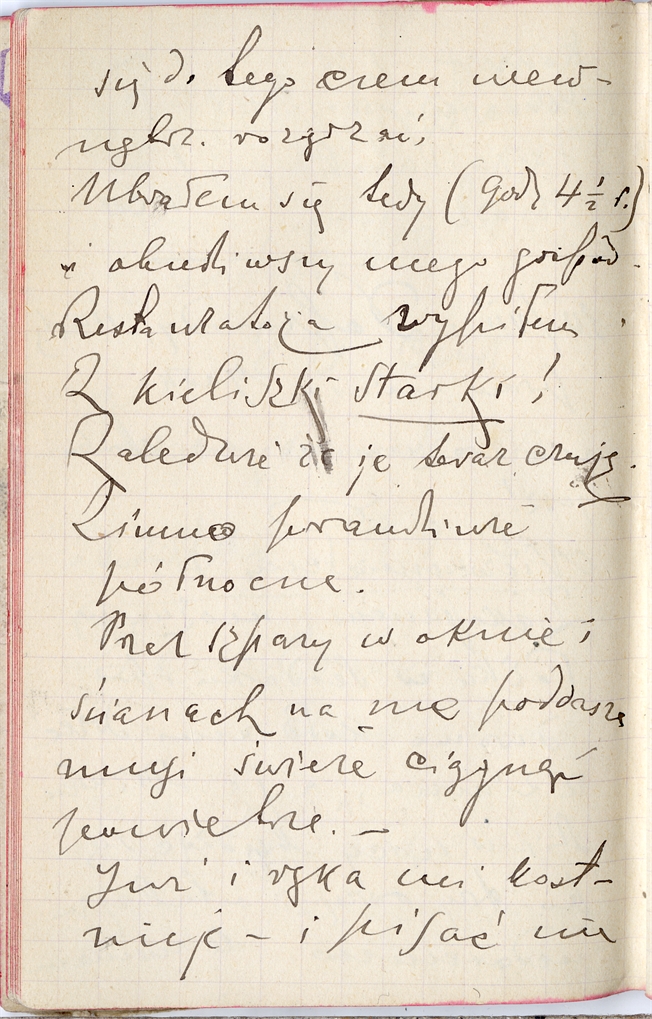 się do tego czem wew-
nątrz. rozgrzać;
Ubrałem się tedy (godz 4 1/2 r.)
i obudziwszy mego gospod.
Restauratora wypiłem
2 kieliszki starki!
Zaledwie że je teraz czuję.
Zimno prawdziwie
północne.
Przez szpary w oknie i
ścianach na me poddasze
musi świeże ciągnąć
powietrze. —
Już i ręka mi kost-
nieje – i pisać nie